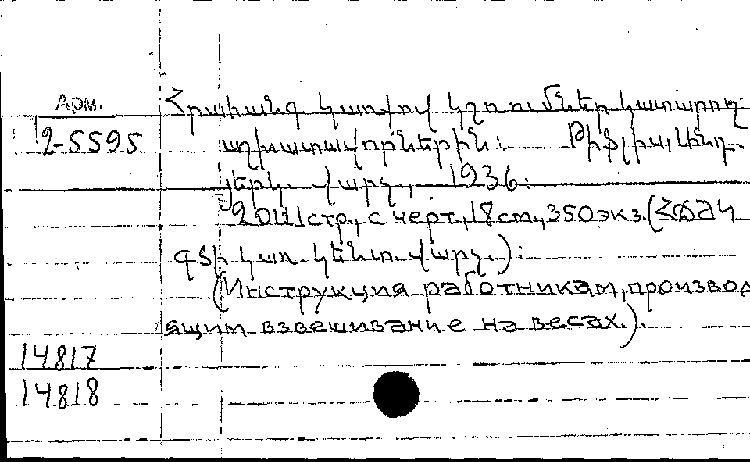 Арм.
2-5595
Հրահանգ կառքով կշռումներ կատարող
աշխատավորներին: Թիֆլիս,
վարչ., 1936.
20 стр., с черт., 18 см, 350 экз. (ՀՖԱԿ
կառ. կենտ. վարչ.):
(Инструкция работникам, производ
ящим взвешивание на весах.).
14817
14818